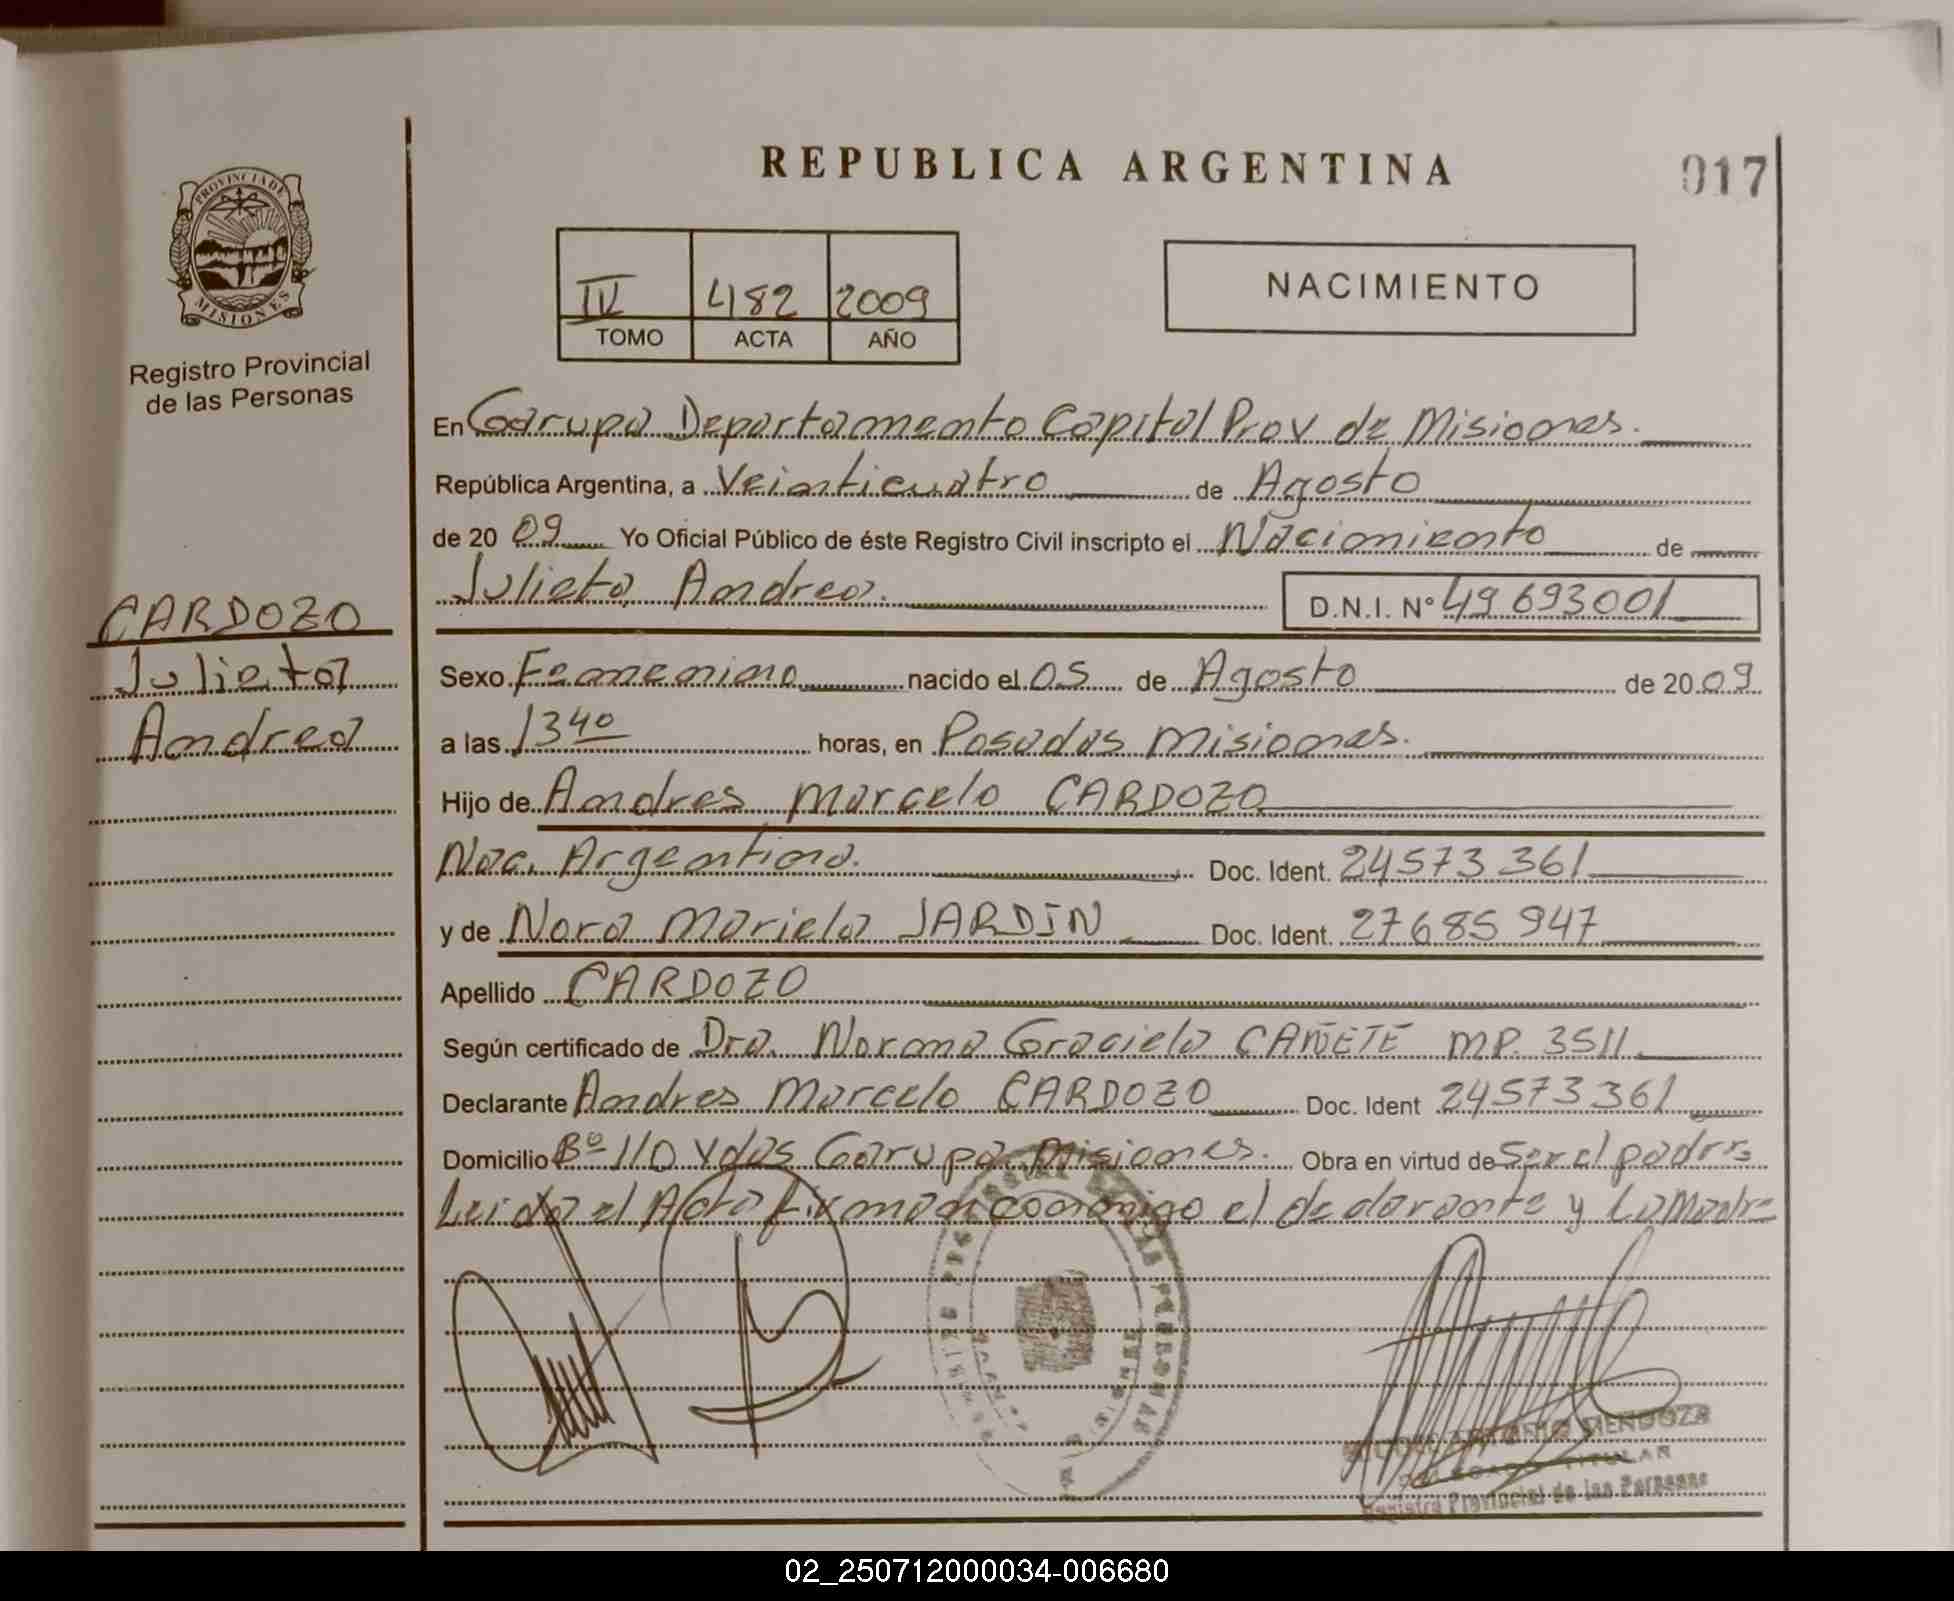 REPUBLICA ARGENTINA
017
PROVINCIA DE
MISIONES
Registro Provincial
de las Personas
IV 482 2009
TOMO ACTA AÑO
NACIMIENTO
En Garupa Departamento Capital Prov de Misiones.
República Argentina, a Veinticuatro de Agosto
de 20 09 Yo Oficial Público de éste Registro Civil inscripto el Nacimiento de
Julieta Andrea. D.N.I. Nº 49 693001
CARDOZO
Julieta
Andrea
Sexo Femenino nacido el 05 de Agosto de 20 09
a las 13 40 horas, en Posadas Misiones.
Hijo de Andres Marcelo CARDOZO
Nac. Argentino. Doc. Ident. 24573 361
y de Nora Mariela JARDIN Doc. Ident. 27685 947
Apellido CARDOZO
Según certificado de Dra. Norma Graciela CAÑETE MP. 3511
Declarante Andres Marcelo CARDOZO Doc. Ident 24573361
Domicilio Bº 110 Vdas Garupa Misiones. Obra en virtud de Ser el padre
Leida el Acta firman conmigo el declarante y La Madre
ANTONIO MENDOZA
TITULAR
Registro Provincial de las Personas
02_250712000034-006680